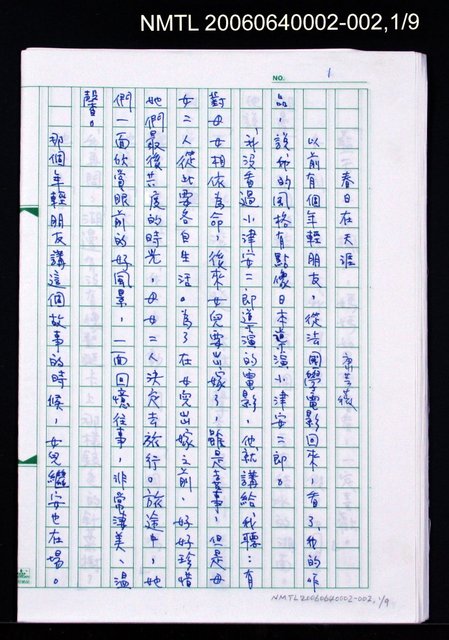 NMTL 20060640002-002,1/9
NO. 1
春日在天涯
以前有個年輕朋友,從法國學電影回來,看了我的作
品,說我的風格有點像日本導演小津安二郎。
我沒看過小津安二郎導演的電影,他就講給我聽:有
對母女相依為命,後來女兒要出嫁了,雖是喜事,但是母
女二人從此要各自生活。為了在女兒出嫁之前,好好珍惜
她們最後共度的時光,母女二人決定去旅行。旅途中,她
們一面欣賞眼前的好風景,一面回憶往事,非常淒美、溫
馨。
那個年輕朋友講這個故事的時候,女兒繼安也在場。
NMTL 20060640002-002,1/9